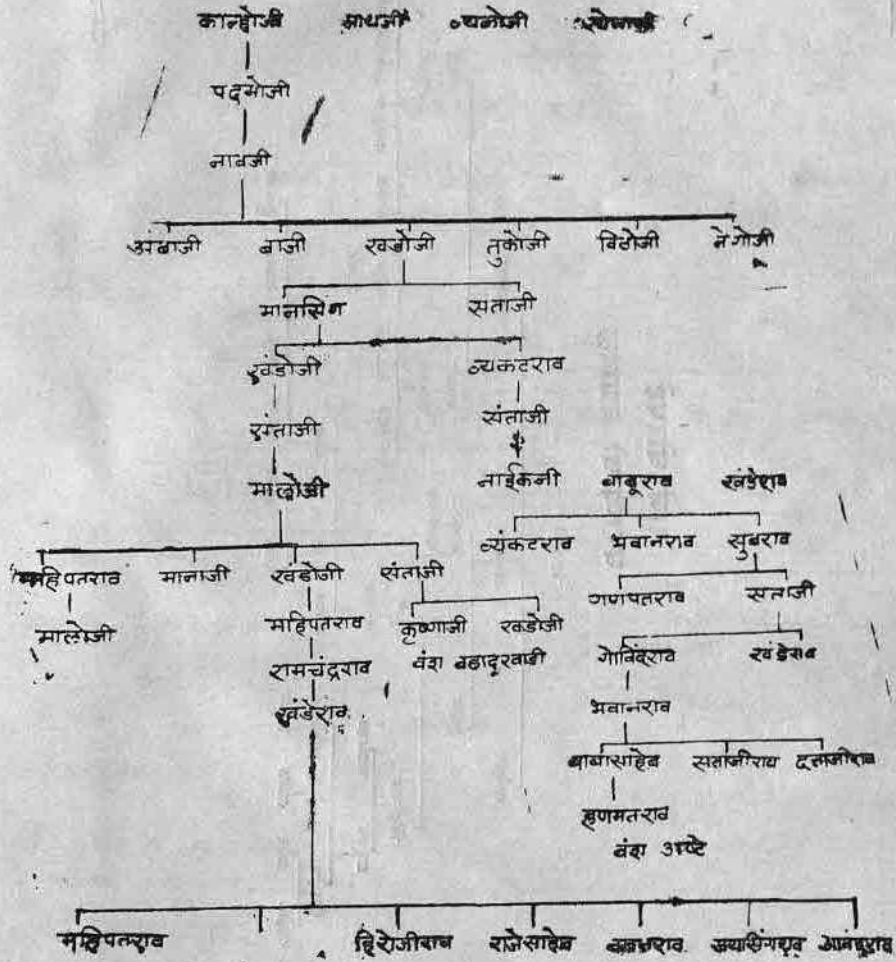 कान्होजी मायजी व्यनोजी
पद्मोजी
नावजी
अंबाजी बाजी खंडोजी तुकोजी विठोजी नेगोजी
मानसिंग सताजी
खंडोजी व्यंकटराव
संताजी संताजी
मालोजी नाईकजी बाबूराव खंडेराव
व्यंकटराव भवानराव सुबराव
महिपतराव मानाजी खंडोजी संताजी
गणपतराव सताजी
मालोजी महिपतराव कृष्णाजी खंडोजी
वंश बहादूरवाडी
रामचंद्रराव गोविंदराव खंडेराव
खंडेराव भवानराव
बाबासाहेब सताजीराव दत्ताजीराव
हणमतराव
वंश आष्टे
महिपतराव हिरोजीराव राजेसाहेब जयसिंगराव आनंदराव